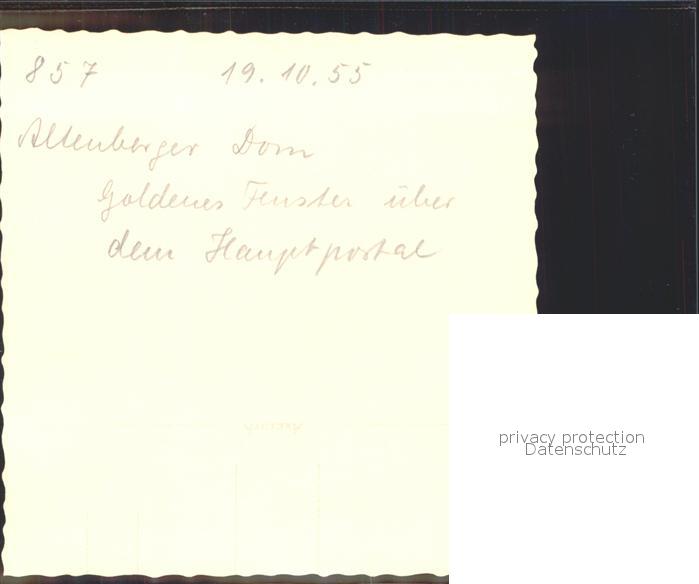 857 19.10.55
Altenberger Dom
Goldenes Fenster über
dem Hauptportal
privacy protection
Datenschutz